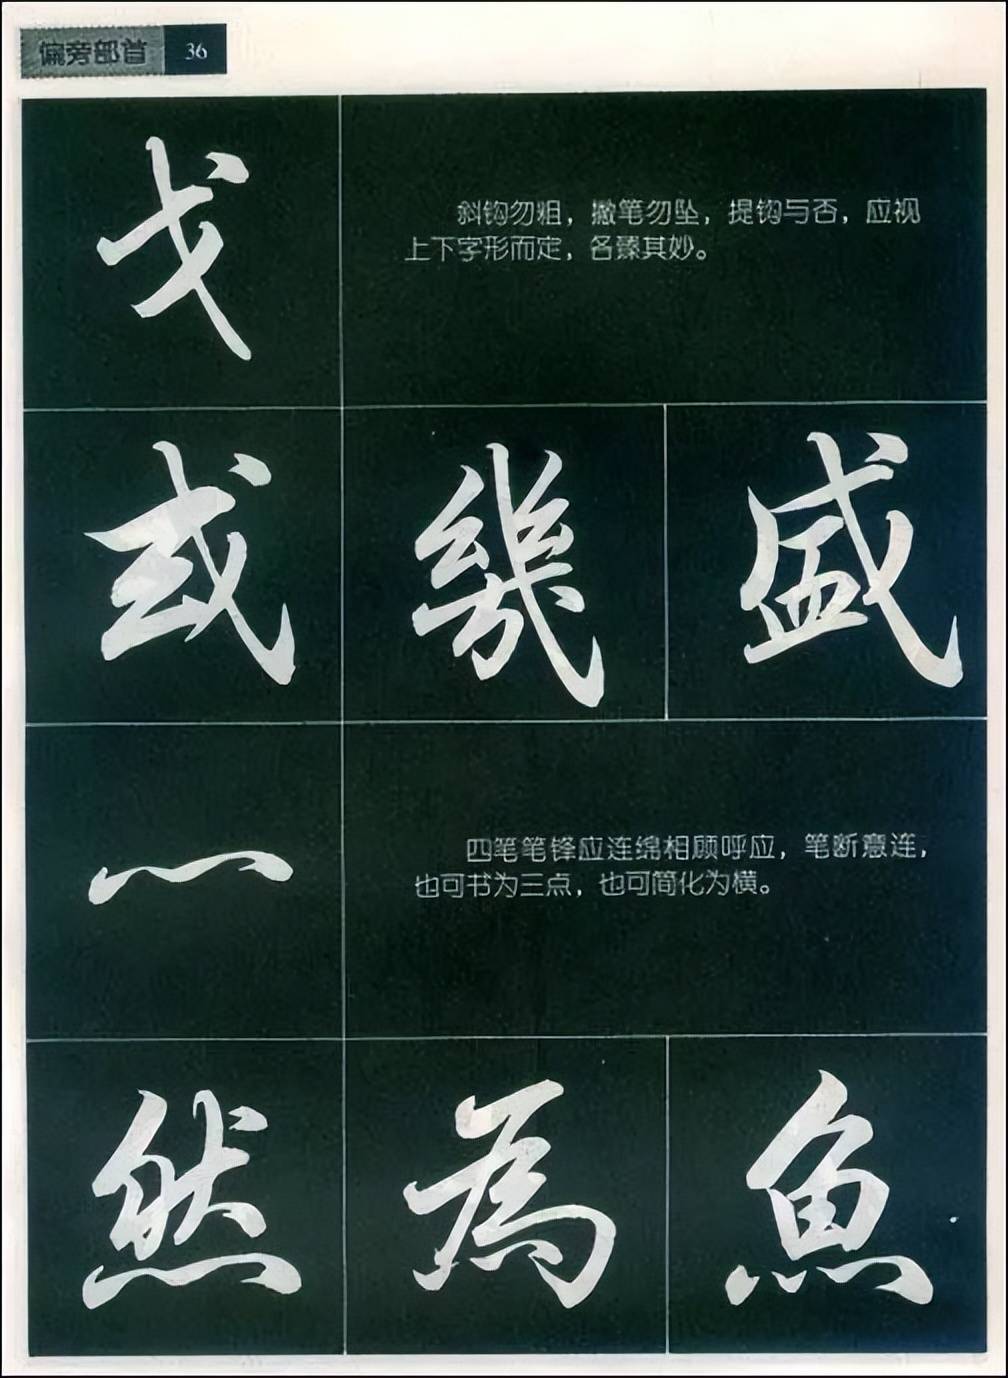 偏旁部首 36
戈
斜钩勿粗，撇笔勿坠，提钩与否，应视
上下字形而定，各臻其妙。
或 幾 盛
灬
四笔笔锋应连绵相顾呼应，笔断意连，
也可书为三点，也可简化为横。
然 為 魚